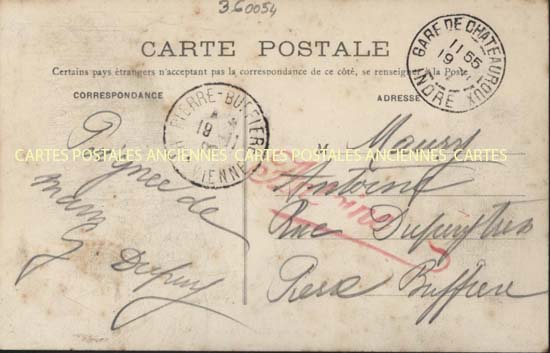 360054
CARTE POSTALE
Certains pays étrangers n'acceptant pas la correspondance de ce côté, se renseigner à la Poste
CORRESPONDANCE
ADRESSE
GARE DE CHATEAUROUX
11 55
19
INDRE
PIERRE-BUFFIERE
19 11
VIENNE
CARTES POSTALES ANCIENNES CARTES POSTALES ANCIENNES CARTES
Poignée de
main
G. Dupuy
M. Maury
Antoine
Rue Dupuytren
Pierre Buffiere